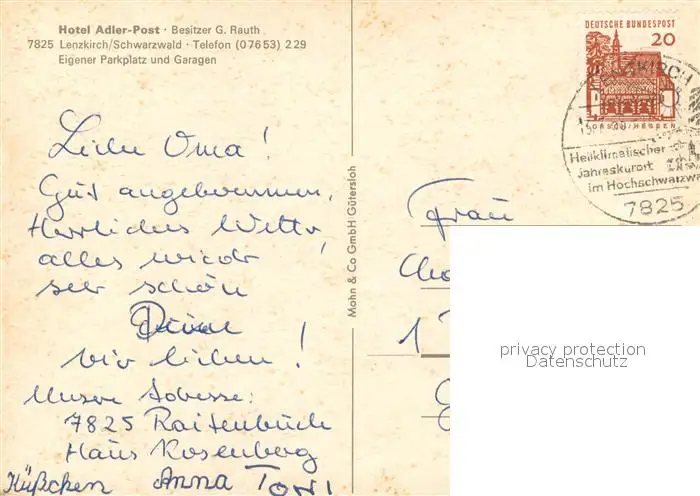 Hotel Adler-Post · Besitzer G. Rauth
7825 Lenzkirch/Schwarzwald · Telefon (07653) 229
Eigener Parkplatz und Garagen
DEUTSCHE BUNDESPOST
20
LORSCH/HESSEN
LENZKIRCH
Heilklimatischer
Jahreskurort
im Hochschwarzwa
7825
Liebe Oma!
Gut angekommen,
Herrliches Wetter,
alles wieder
seer schön
wir lieben!
Unsere Adresse:
7825 Raitenbuch
Haus Rosenberg
Küßchen Anna Toni
Mohn & Co GmbH Gütersloh
Frau
1
privacy protection
Datenschutz